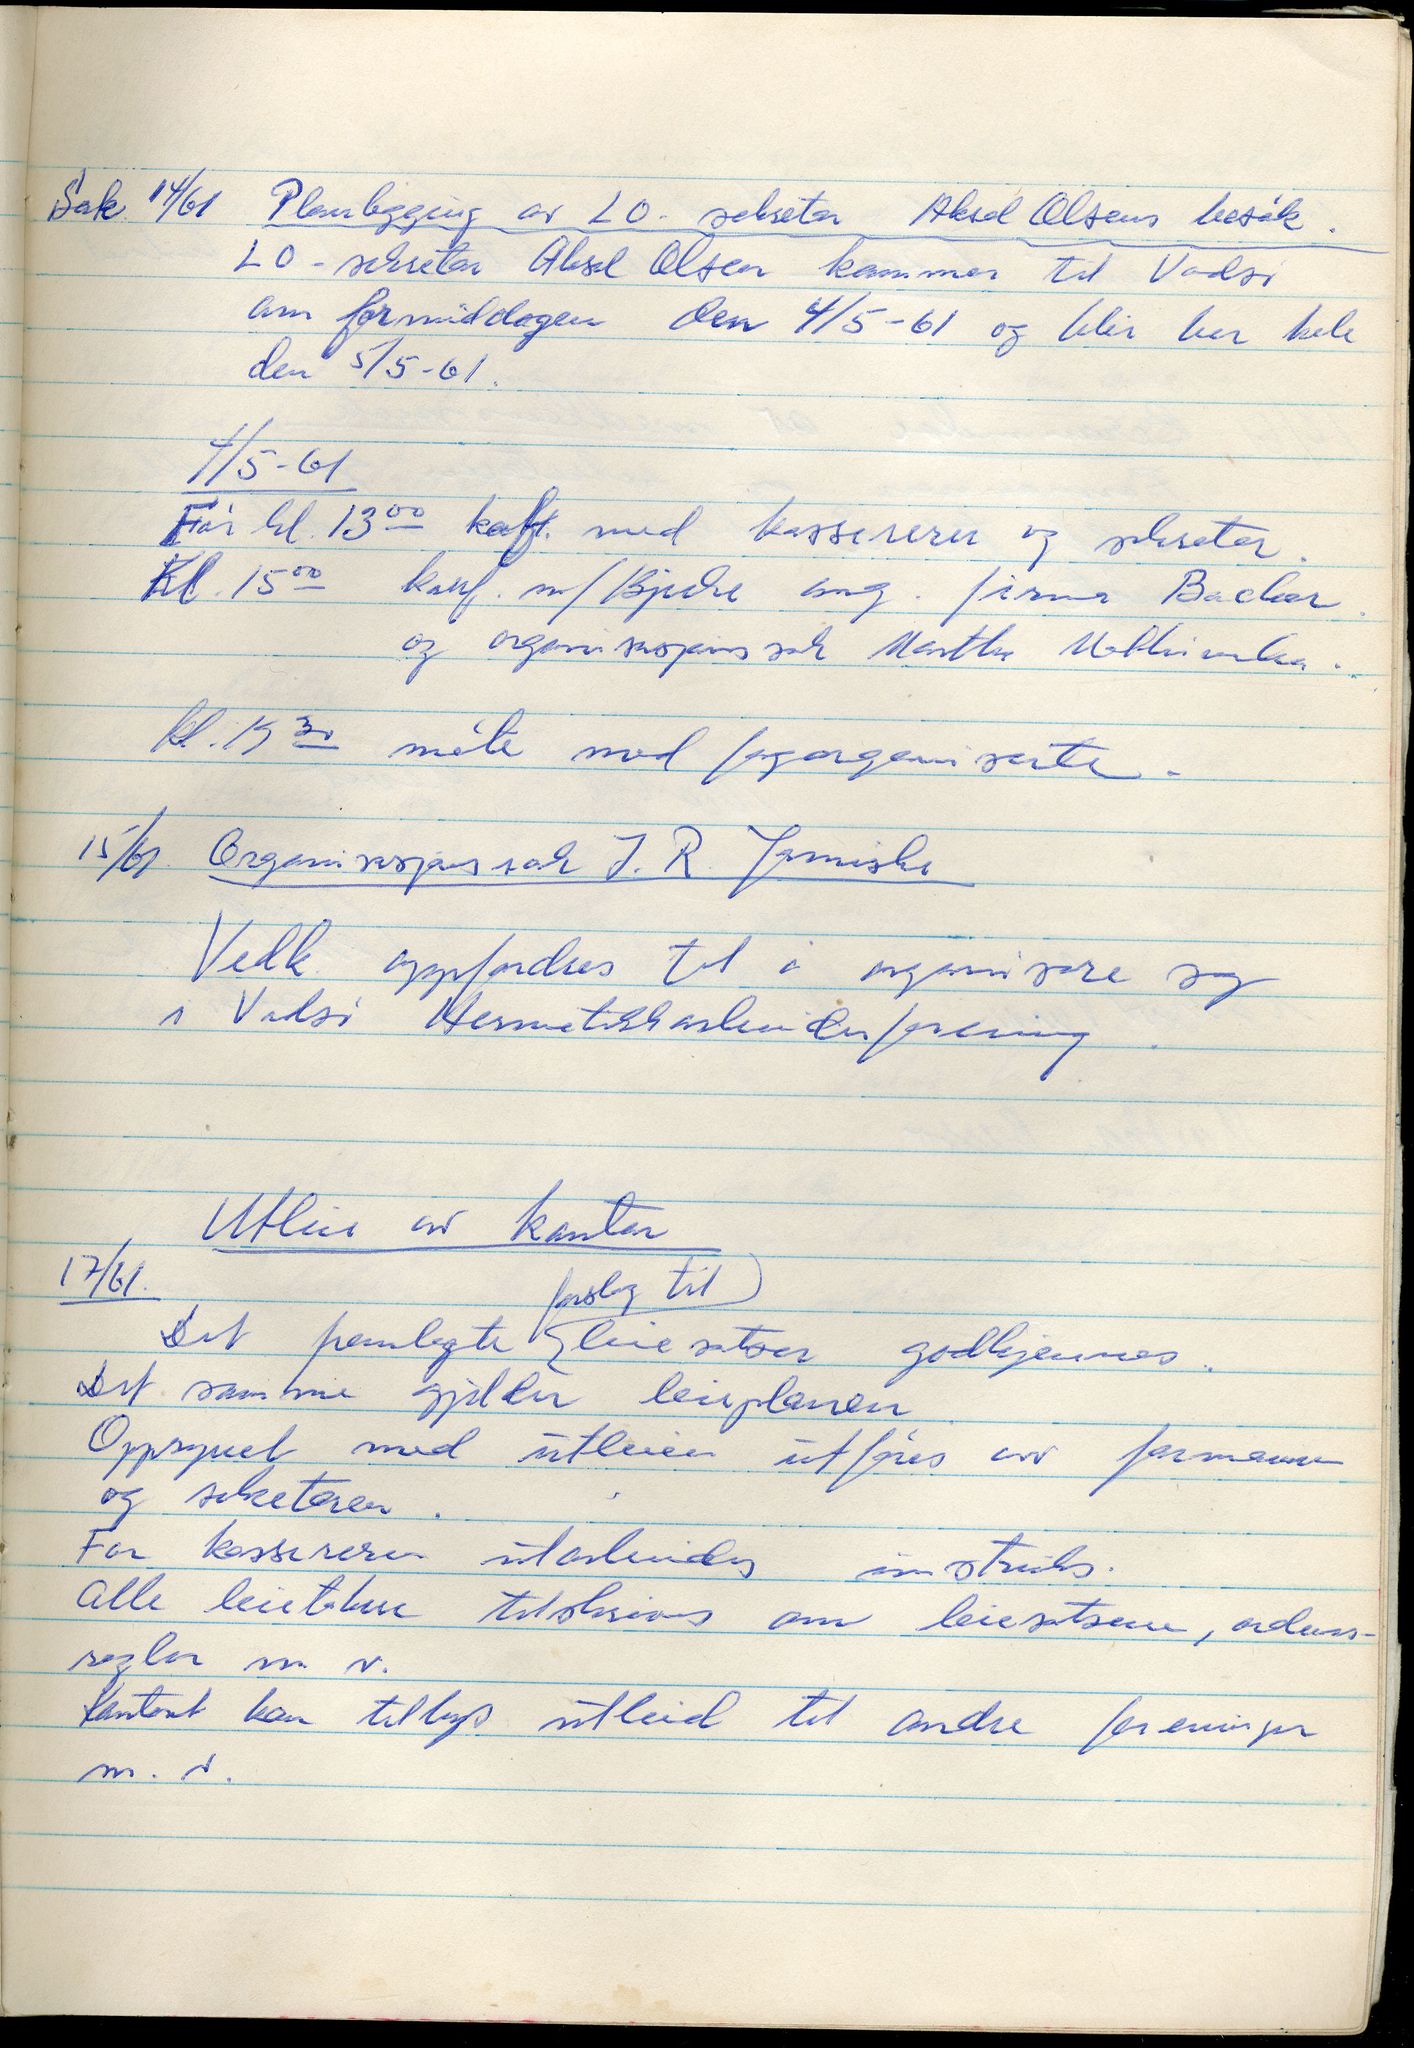 Sak 14/61 Planlegging av LO-sekretær Aksel Olsens besøk.
LO-sekretær Aksel Olsen kommer til Vadsø
om formiddagen den 4/5-61 og blir her hele
den 5/5-61.
4/5-61
Før kl. 13 00 konf. med kassereren og sekretær.
Kl. 15 00 konf. m/ Bjerke ang. firma Backer
og organisasjonssak Martha
kl. 19 30 møte med fagorganiserte.
15/61 Organisasjonssak J. R.
Vedk. oppfordres til å organisere seg
i Vadsø Hermetikkarbeiderforening.
Utleie av kontor
17/61.
forslag til
Det fremlagte leiesatser godkjennes.
Det samme gjelder leieplanen
Oppsynet med utleien utføres av formann
og seketæren.
For kassereren utarbeides instruks.
Alle leietakere tilskrives om leiesatsene, ordens-
regler m. v.
Kontoret kan tilbys utleid til andre foreninger
m. v.